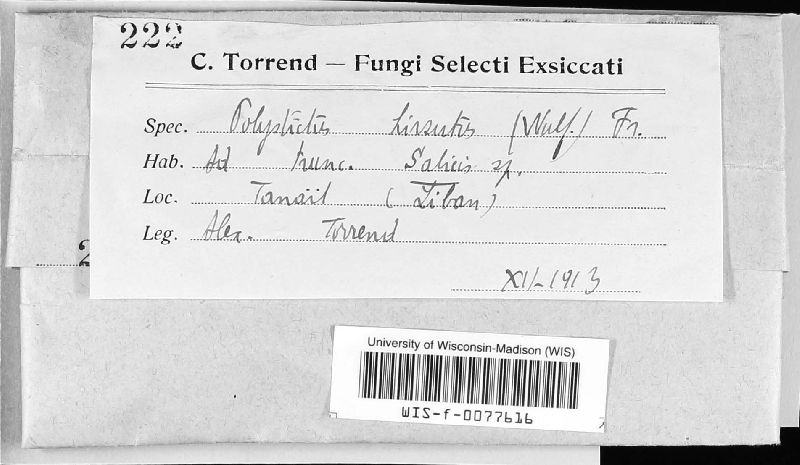 222
C. Torrend — Fungi Selecti Exsiccati
Spec. Polystictus hirsutus (Wulf.) Fr.
Hab. Ad trunc. Salicis sp.
Loc. Tanaïl (Liban)
Leg. Alex. Torrend
XII-1913
2
University of Wisconsin-Madison (WIS)
WIS-f-0077616